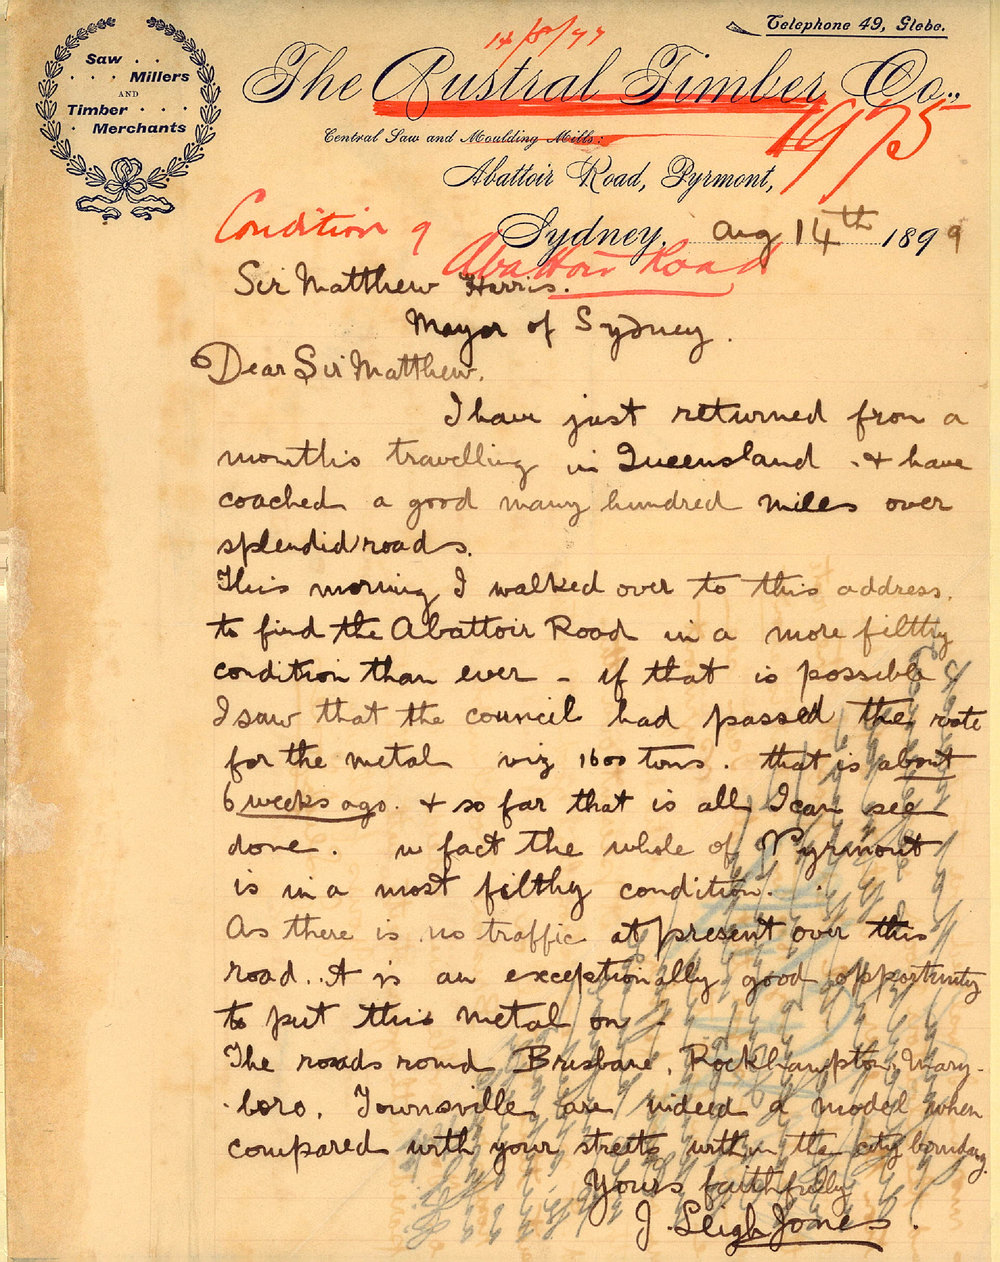 Telephone 49, Glebe.
14/8/99
Saw
Millers
AND
Timber
Merchants
The Austral Timber Co.,
1975
Central Saw and Moulding Mills:
Abattoir Road, Pyrmont,
Condition of
Abattoir Road
Sydney, Aug 14th 1899
Sir Matthew Harris.
Mayor of Sydney.
Dear Sir Matthew.
I have just returned from a
months travelling in Queensland . & have
coached a good many hundred miles over
splendid roads.
This morning I walked over to this address.
to find the Abattoir Road in a more filthy
condition than ever - if that is possible
I saw that the council had passed the vote
for the metal viz 1600 tons. that is about
6 weeks ago. & so far that is all I can see
done. in fact the whole of Pyrmont
is in a most filthy condition.
As there is no traffic at present over this
road.. it is an exceptionally good opportunity
to put this metal on -
The roads round Brisbane, Rockhampton, Mary-
-boro, Townsville are indeed a model when
compared with your streets within the city boundary.
Yours faithfully
J. Leigh Jones.